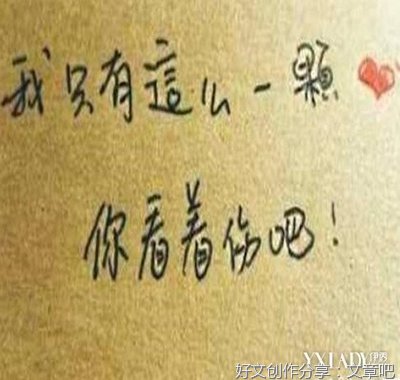 我只有這么一顆
你看着伤吧！
YXLADY伊秀
好文创作分享：文章吧